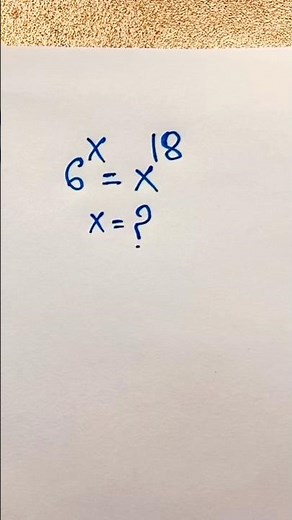 6ˣ = x¹⁸
x = ?